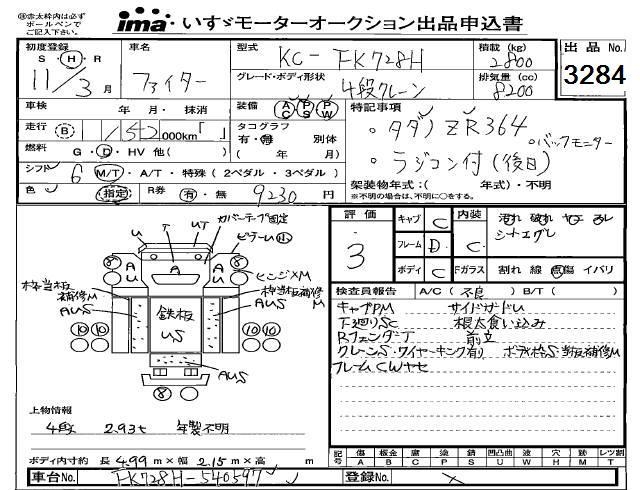 ㊟赤太枠内は必ず
ボールペンで
ご記入下さい。
ima いすゞモーターオークション出品申込書
初度登録 S・H・R 11/3月
車名 ファイター
型式 KC-FK728H
積載(kg) 2800
出品No. 3284
グレード・ボディ形状 4段クレーン
排気量(cc) 8200
車検 年 月・抹消
装備 AC PS PW
特記事項
走行 B 1/52 000km「 」
タコグラフ 有・無 別体 ( 年 月)
・タダノZR364
・バックモニター
燃料 G・D・HV 他( )
・ラジコン付(後日)
シフト 6 M/T・A/T・特殊(2ペダル・3ペダル)
色 指定
R券 有・無 9230円
架装物年式:( 年式)・不明
※不明の場合は、不明に○をする。
評価 3
キャブ C
内装 C
汚れ 破れ ヤケ コレ
シートエグレ
フレーム D
ボディ C
Fガラス 割れ 線 点傷 イバリ
U T UT
カバーテープ固定
ピラーU小
A U A A U
ヒンジ×M
木枠当板補修M
AUS
枠当板補修M
AUS
鉄板 US
8 8
10 10 10 10
AUS
8
検査員報告 A/C(不良) B/T( )
キャブPM サイドガードU
下廻りSC 根太食い込み
RフェンダーT 前立
クレーンS・ワイヤーキング有り ボデ枠S・当板補修M
フレームCWヤセ
上物情報
4段 2.93t 年製不明
ボディ内寸約 長 4.99m×幅 2.15m×高 m
記号 傷A 板金B 腐C 塗P 錆S 凹凸曲U 波W 穴H 跡M レツ割T
車台No. FK728H-540597
登録No.